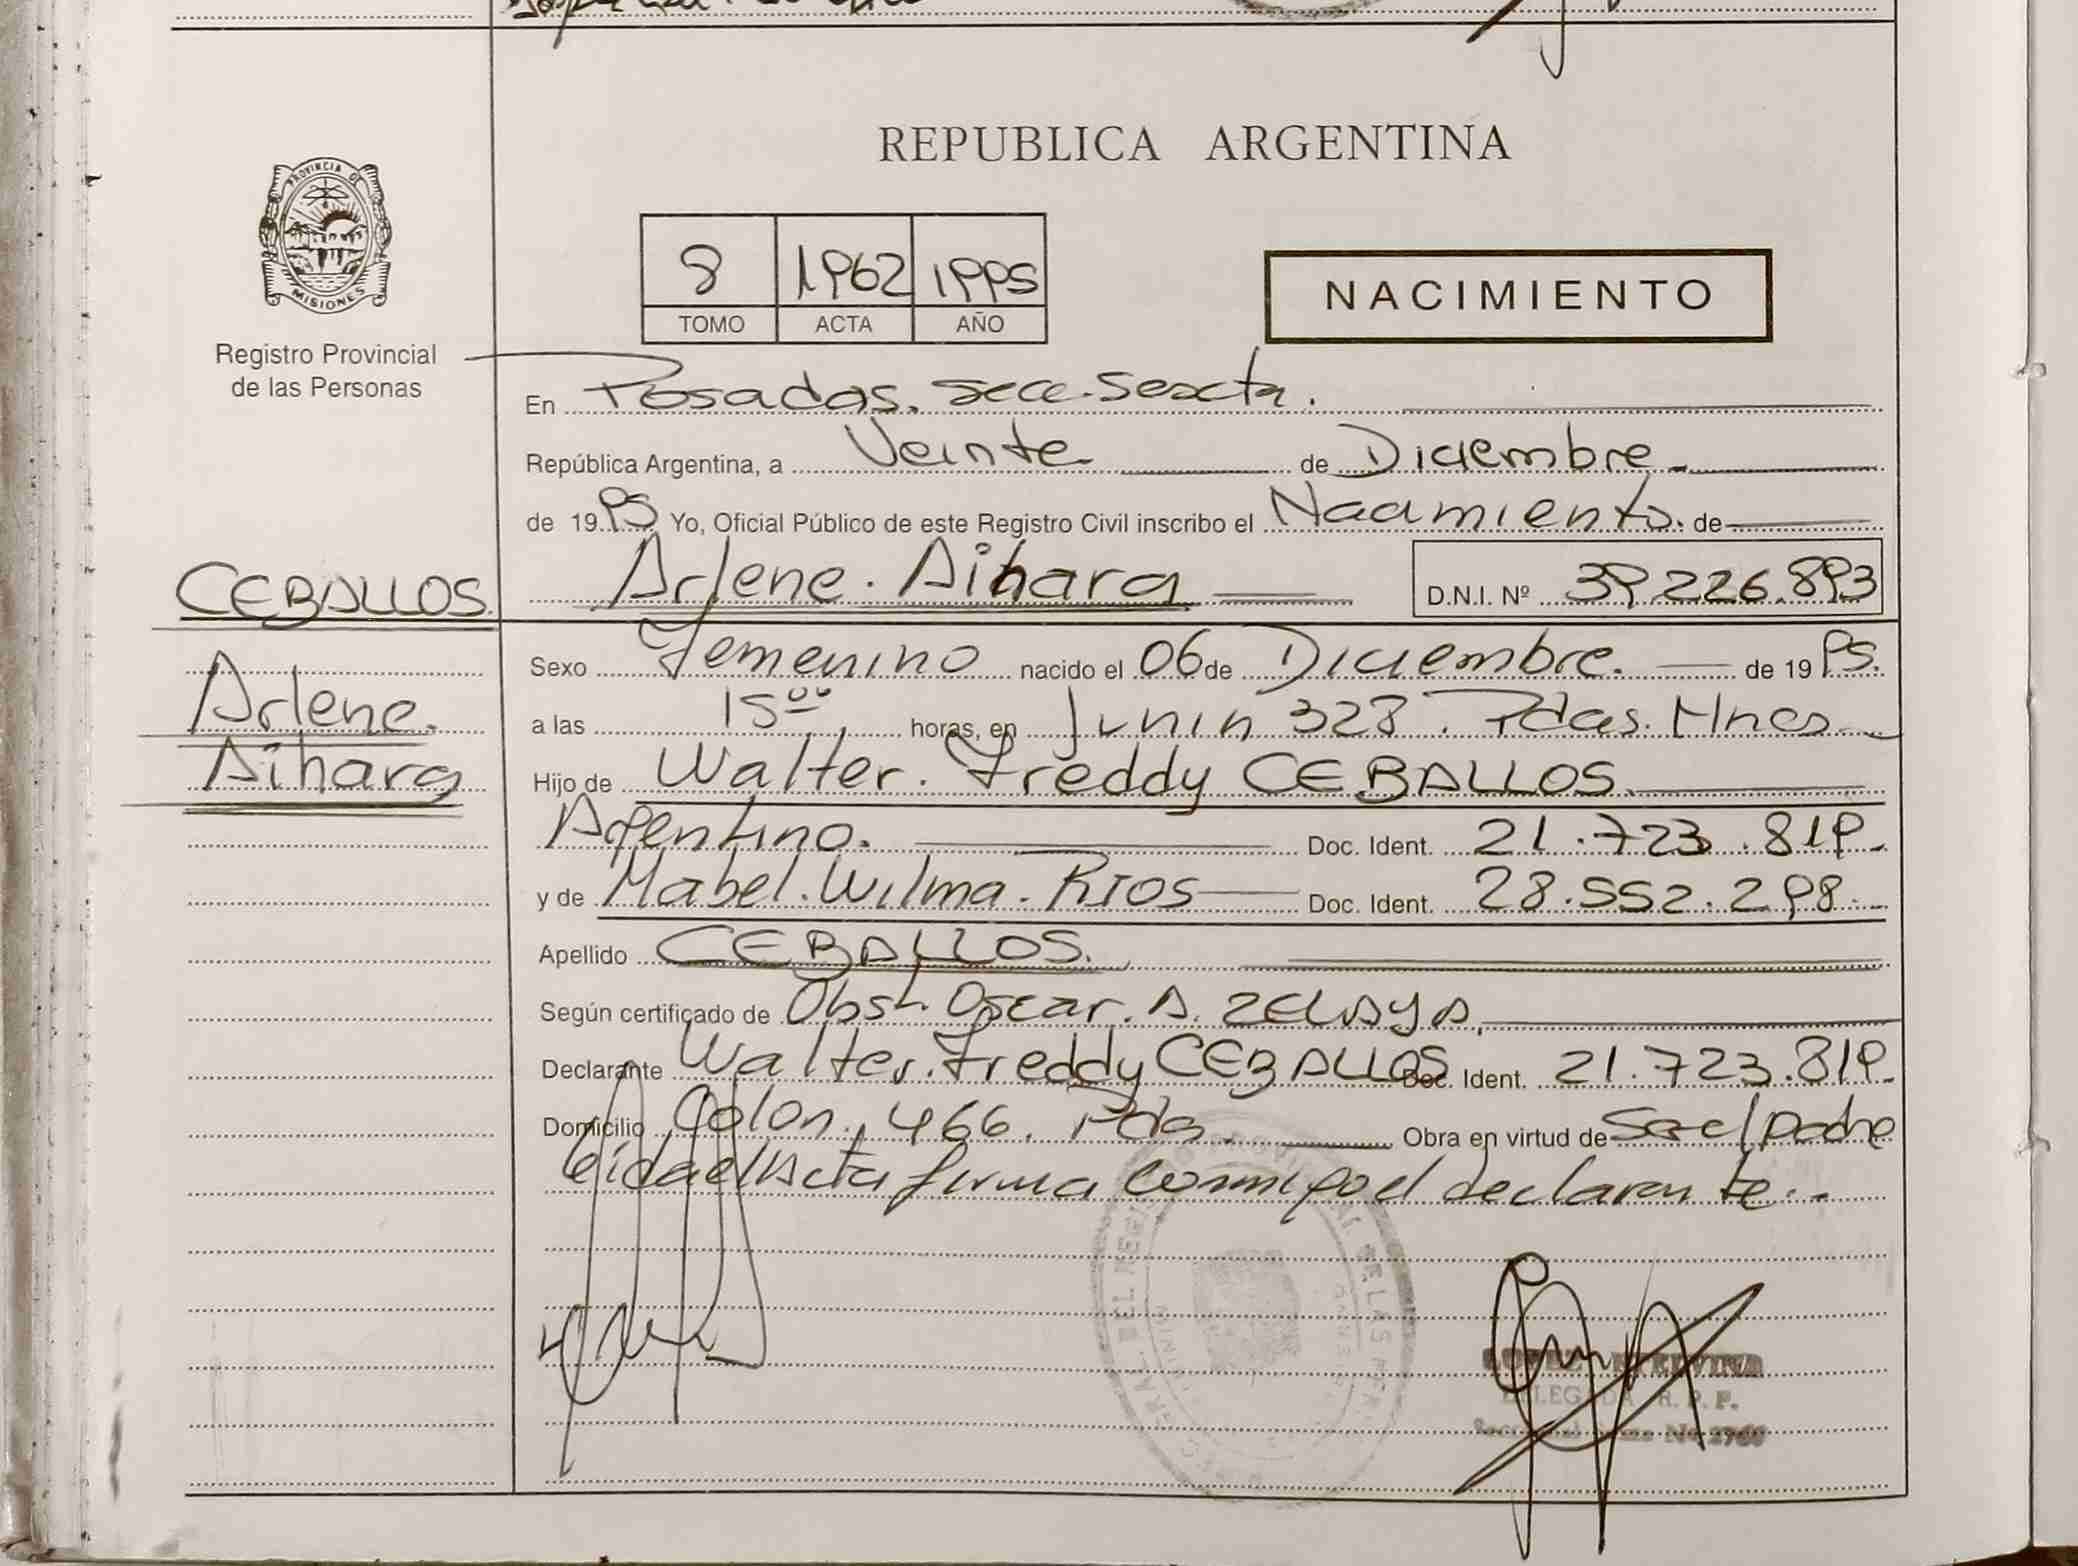 REPUBLICA ARGENTINA
PROVINCIA DE
MISIONES
Registro Provincial
de las Personas
8 1962 1995
TOMO ACTA AÑO
NACIMIENTO
En Posadas. Secc. Sexta.
República Argentina, a Veinte de Diciembre.
de 1995 Yo, Oficial Público de este Registro Civil inscribo el Nacimiento. de
Arlene. Aihara D.N.I. Nº 39.226.893
CEBALLOS.
Arlene.
Aihara
Sexo Femenino nacido el 06 de Diciembre. de 1995.
a las 15⁰⁰ horas, en Junin 328. Pdas. Mnes.
Hijo de Walter. Freddy CEBALLOS.
Argentino. Doc. Ident. 21.723.819.
y de Mabel. Wilma. RIOS Doc. Ident. 28.552.298.
Apellido CEBALLOS.
Según certificado de Obst. Oscar. A. ZELAYA.
Declarante Walter. Freddy CEBALLOS Doc. Ident. 21.723.819.
Domicilio Colon. 466. Pdas. Obra en virtud de Ser el padre
leida el Acta firma conmigo el declarante..
DELEGADA R. P. P.